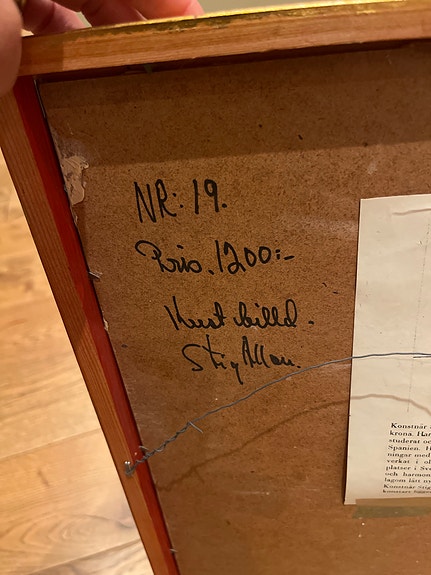 NR: 19.
Pris. 1200:-
Kustbilld.
Stig Allan.
Konstnär
krona. Han
studerat oc
Spanien. H
ningar med
verkat i ol
platser i Sve
och harmon
lagom lätt ny
Konstnär Stig